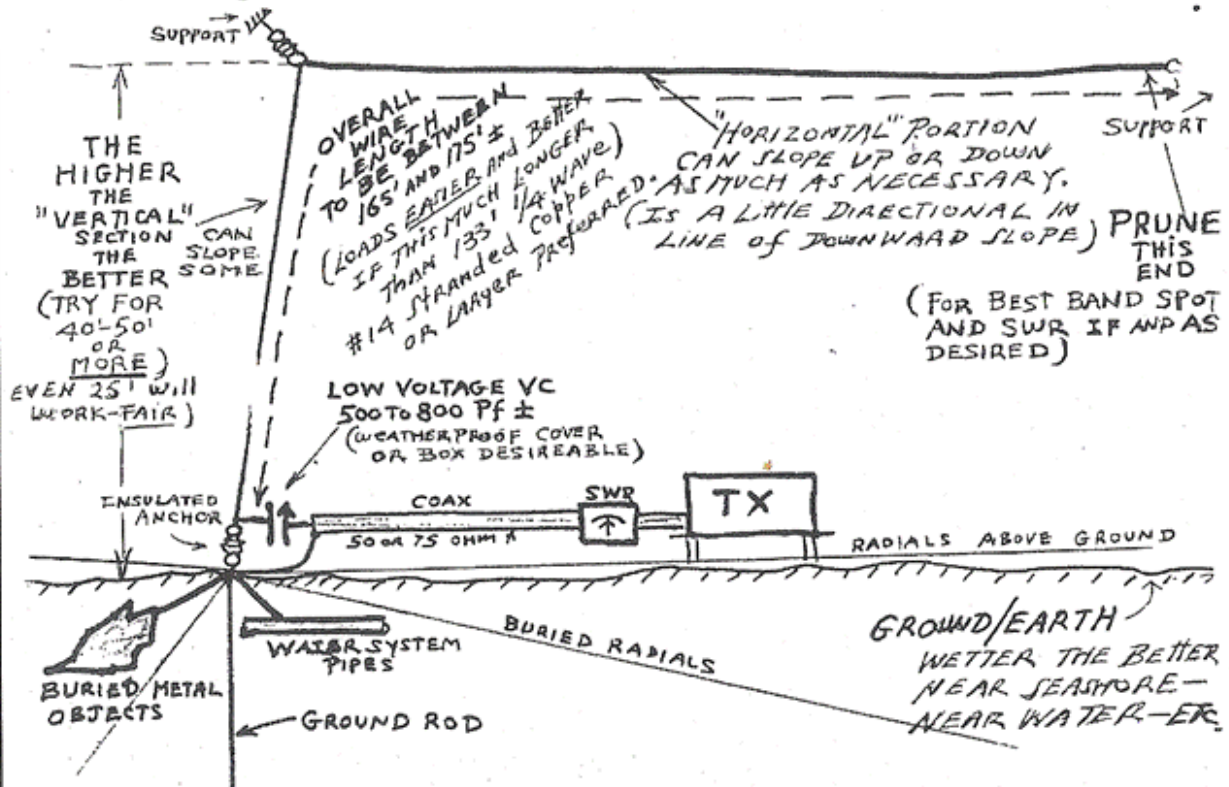 SUPPORT
THE
HIGHER
THE
"VERTICAL"
SECTION
THE
BETTER
(TRY FOR
40'-50'
OR
MORE)
EVEN 25' WILL
WORK-FAIR)
CAN
SLOPE
SOME
OVERALL
WIRE
LENGTH
TO BE BETWEEN
165' AND 175' ±
(LOADS EASIER AND BETTER
IF THIS MUCH LONGER
THAN 133' 1/4 WAVE)
#14 STRANDED COPPER
OR LARGER PREFERRED.
"HORIZONTAL" PORTION
CAN SLOPE UP OR DOWN
AS MUCH AS NECESSARY.
(IS A LITTLE DIRECTIONAL IN
LINE OF DOWNWARD SLOPE)
SUPPORT
PRUNE
THIS
END
(FOR BEST BAND SPOT
AND SWR IF AND AS
DESIRED)
LOW VOLTAGE VC
500 TO 800 Pf ±
(WEATHERPROOF COVER
OR BOX DESIREABLE)
INSULATED
ANCHOR
COAX
50 OR 75 OHM
SWR
TX
RADIALS ABOVE GROUND
BURIED METAL
OBJECTS
WATER SYSTEM
PIPES
GROUND ROD
BURIED RADIALS
GROUND/EARTH
WETTER THE BETTER
NEAR SEASHORE—
NEAR WATER—ETC.